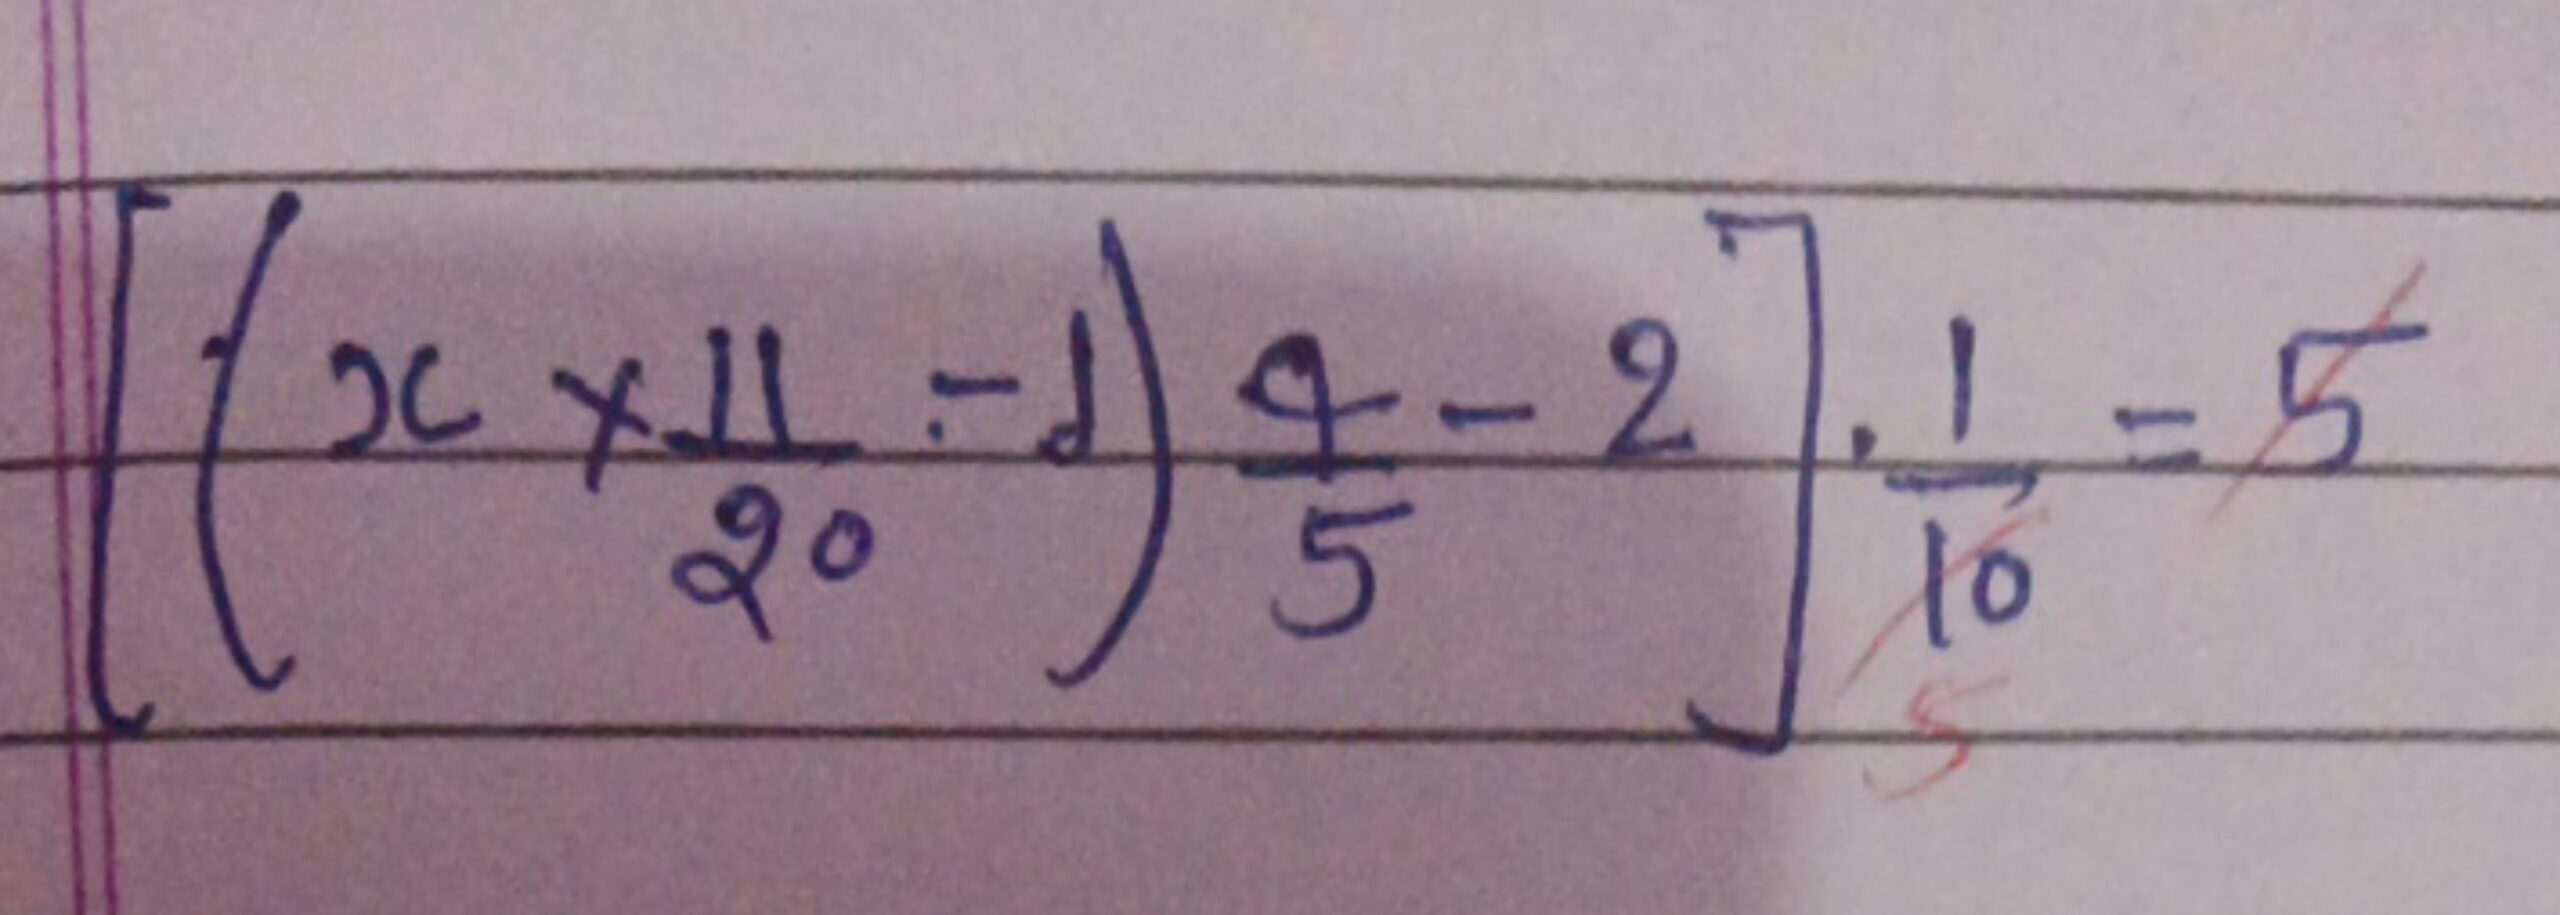 [(x × 11/20 - 1) 4/5 - 2] . 1/10 = 5
5